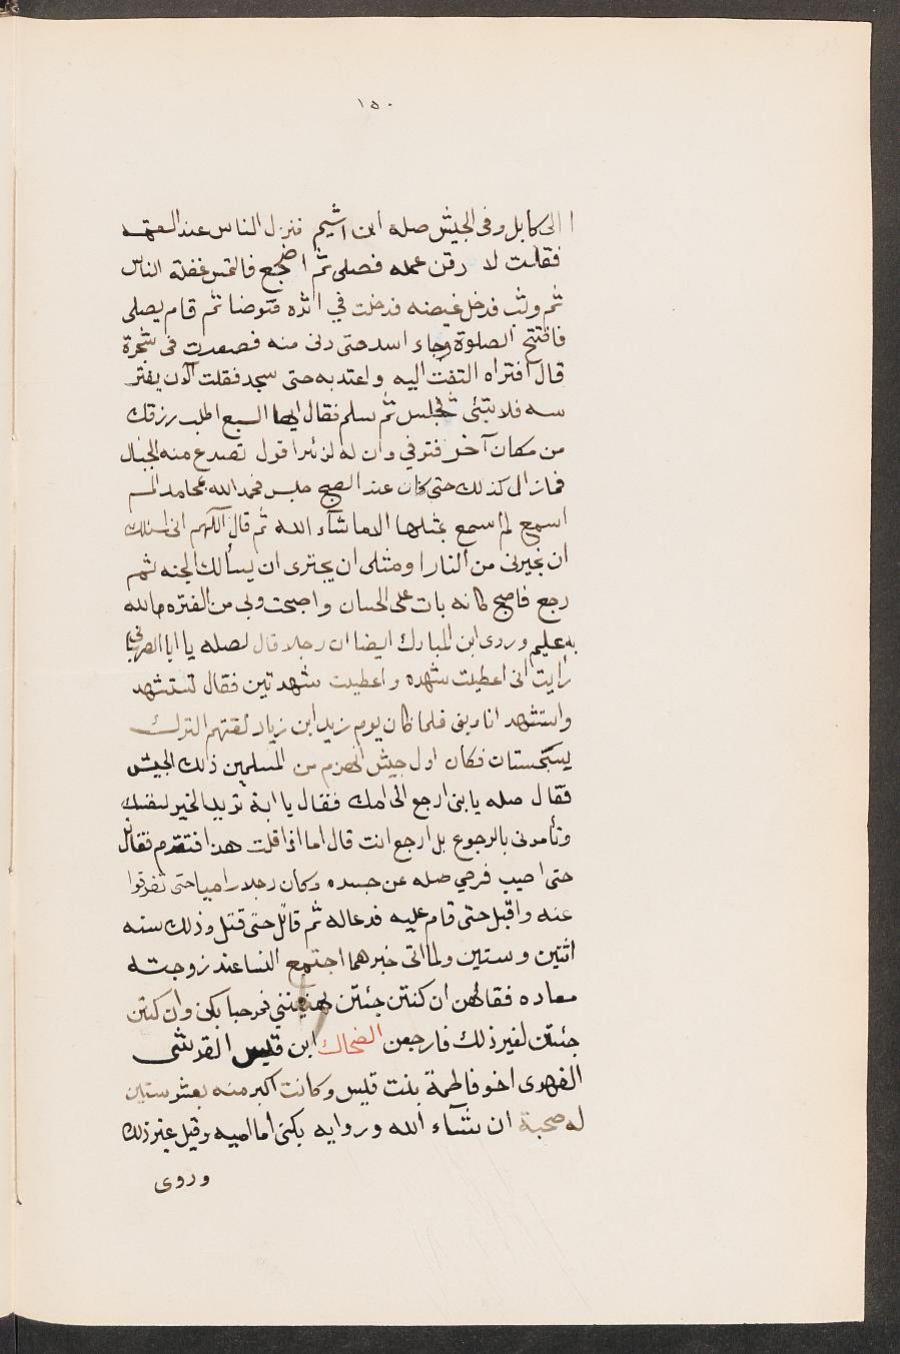 ١٥٠
الى كابل وفى الجيش صله ابن اشيم فنزل الناس عند العتمه
فقلت لا رقن عمله فصلى ثم اضجع فالتمس غفلة الناس
ثم وثب فدخل غيضه فدخلت في اثره فتوضا ثم قام يصلى
فافتتح الصلوة وجاء اسد حتى دنى منه فصعدت فى شجرة
قال افتراه التفت اليه واعتد به حتى سجد فقلت الآن يفتر
سه فلا ثم جلس ثم سلم فقال ايها السبع اطلب رزقك
من مكان آخر فتر في وان له لزئرا قول تصدع منه الجبال
فمازال كذلك حتى كان عند الصبح جلس فحمد الله بمحامد لم
اسمع لم اسمع بمثلها الا ما شآء الله ثم قال اللهم انى اسئلك
ان تجيرنى من النار او مثلى ان يجترى ان يسألك الجنه ثم
رجع فاصبح كانه بات على الحسان واصبحت وبى من الفتره ما الله
به عليم وروى ابن المبارك ايضا ان رجلا قال لصله يا ابا
رايت انى اعطيت شهده واعطيت شهدتين فقال تستشهد
واستشهد انا وبنى فلما كان يوم زيد ابن زياد لقتهم الترك
بسجستان فكان اول جيش انهزم من المسلمين ذلك الجيش
فقال صله يا بنى ارجع الى امك فقال يا ابة تريد الخير لنفسك
وتأمرنى بالرجوع بل ارجع انت قال اما اذا قلت هذا فتقدم فقاتل
حتى اصيب فرمي صله عن جسده وكان رجلا راميا حتى تفرقوا
عنه واقبل حتى قام عليه فدعا له ثم قاتل حتى قتل وذلك سنه
اثنين وستين ولما اتى خبرهما اجتمع النسا عند زوجته
معاده فقالهن ان كنتن جئتن لتهنيننى فمرحبا بكن وان كنتن
جئتن لغير ذلك فارجعن الضحاك ابن قيس القرشى
الفهرى اخو فاطمة بنت قيس وكانت اكبر منه بعشر سنين
له صحبة ان شآء الله وروايه يكنى اما اميه وقيل غير ذلك
وروى